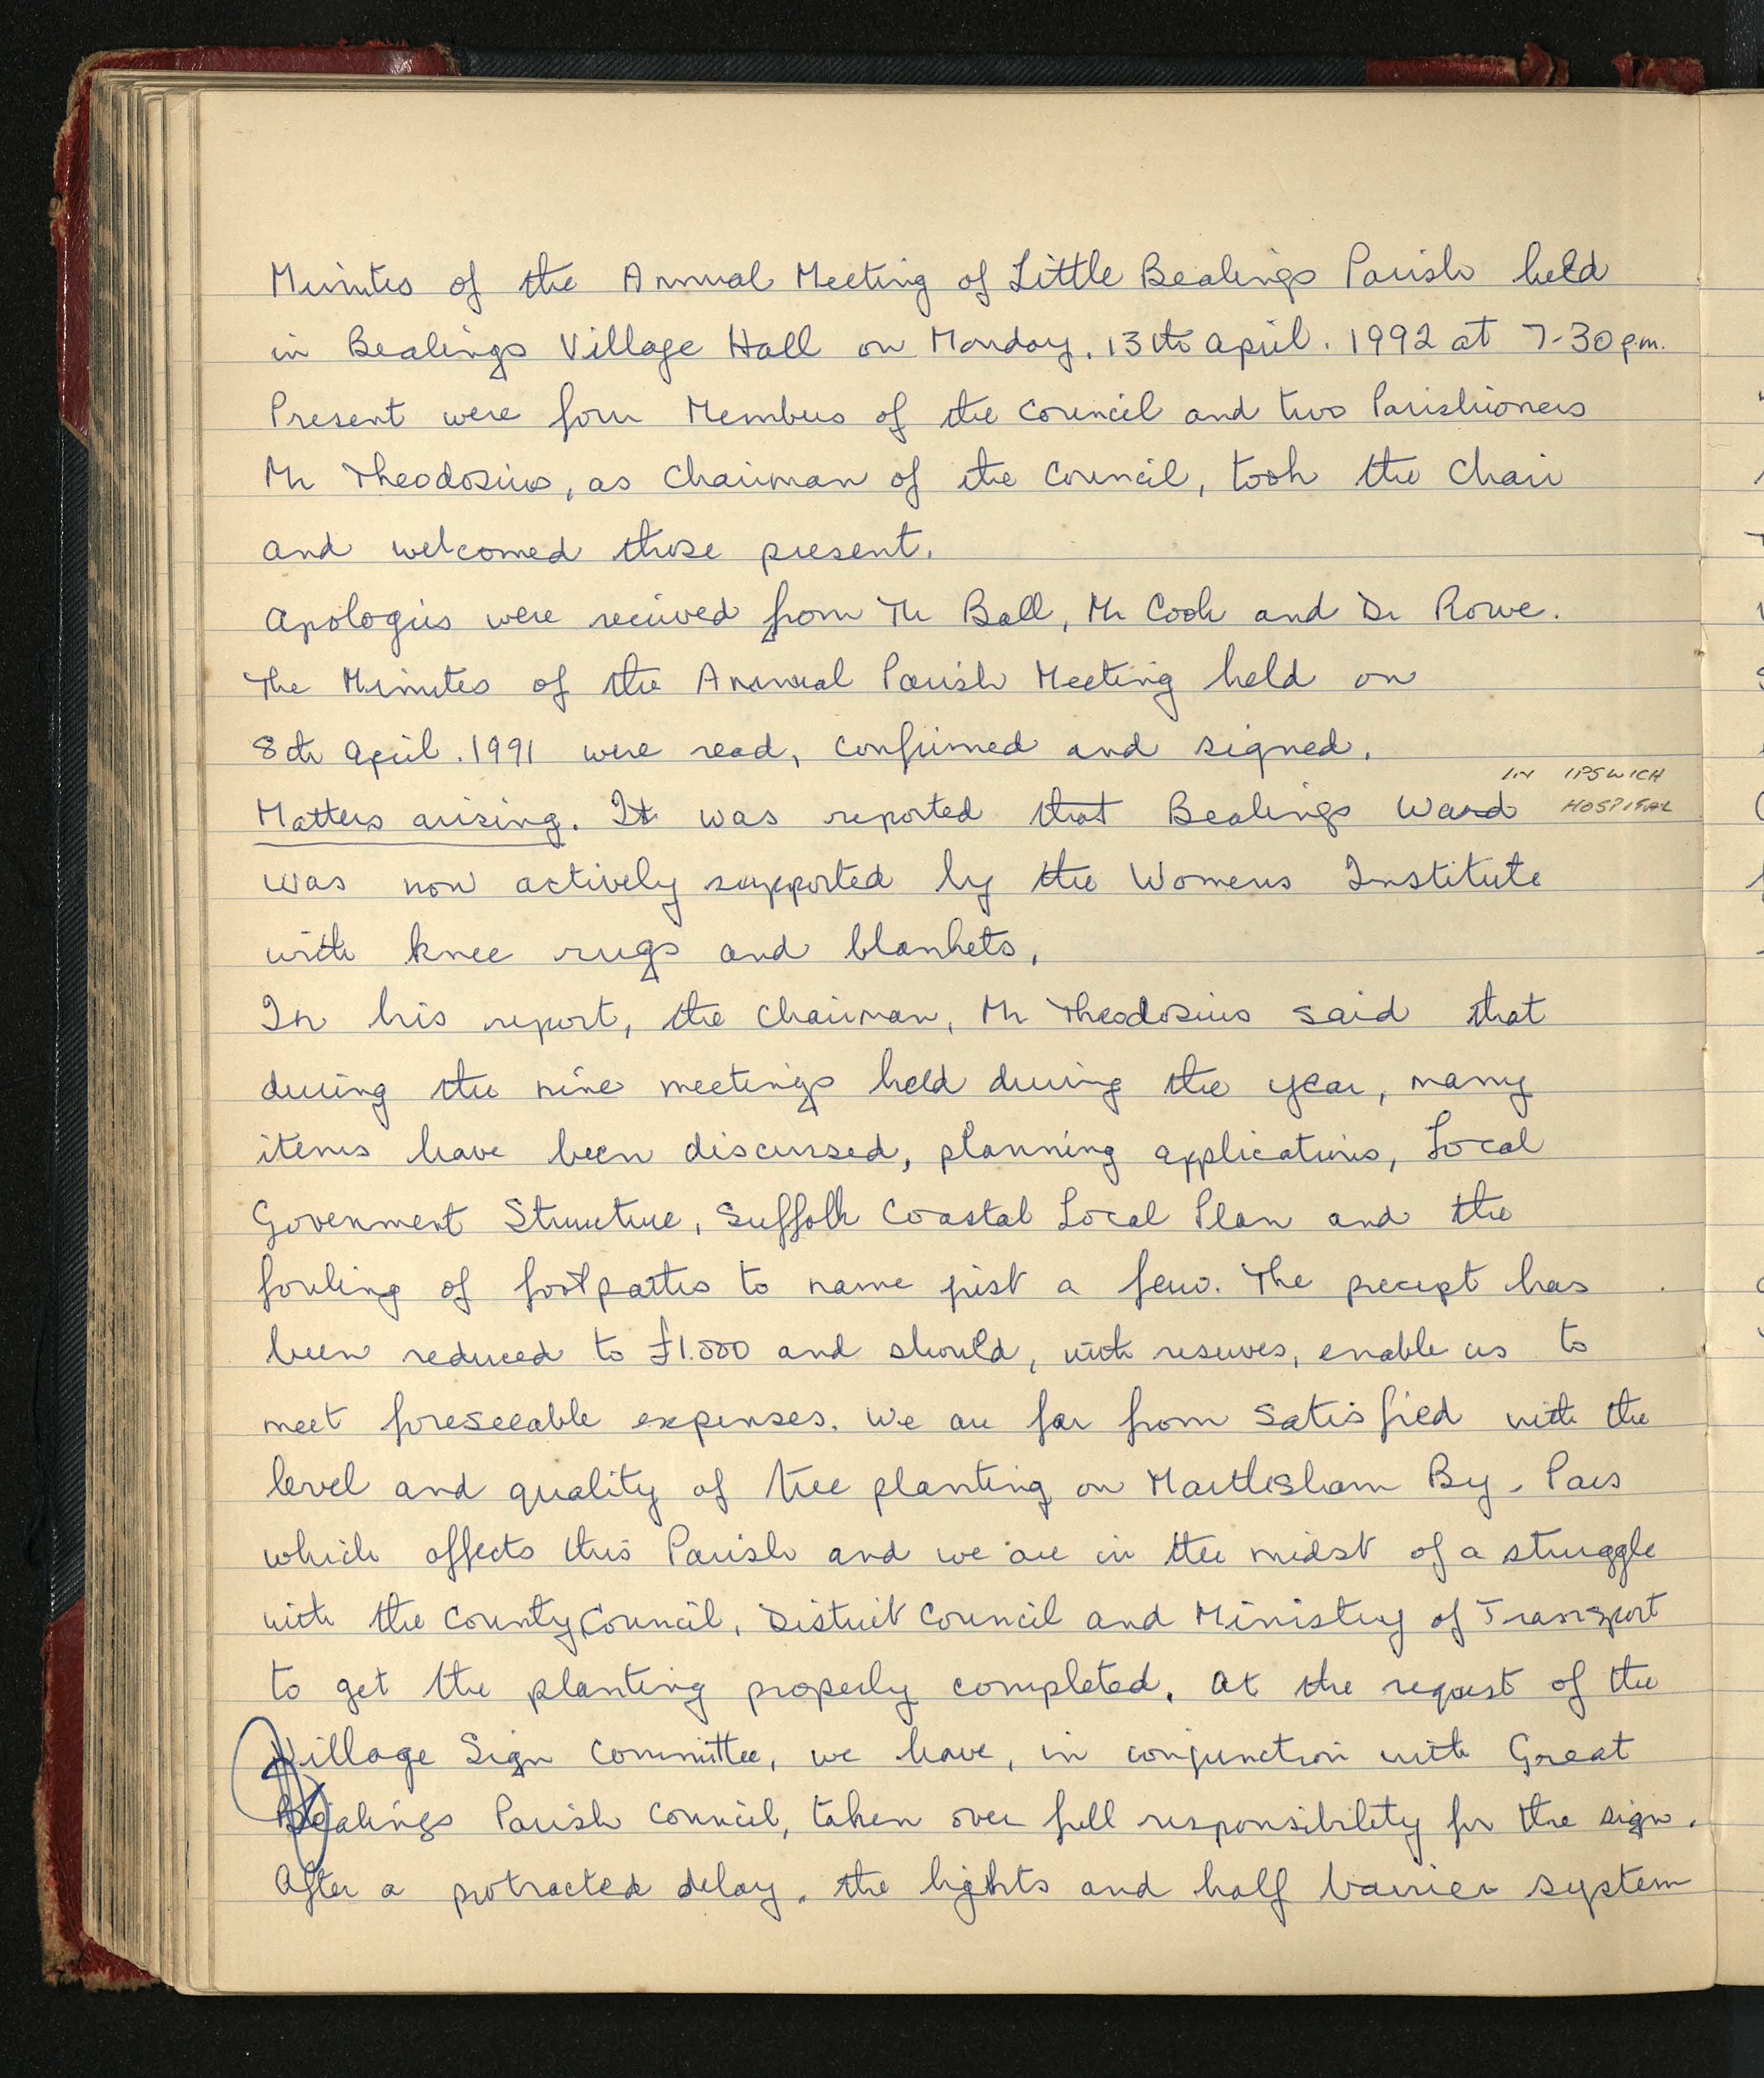 Minutes of the Annual Meeting of Little Bealings Parish held
in Bealings Village Hall on Monday, 13th April. 1992 at 7-30 p.m.
Present were four Members of the Council and two Parishioners
Mr Theodosius, as Chairman of the Council, took the Chair
and welcomed those present.
Apologies were received from Mr Ball, Mr Cook and Dr Rowe.
The Minutes of the Annual Parish Meeting held on
8th April. 1991 were read, confirmed and signed.
IN IPSWICH
HOSPITAL
Matters arising. It was reported that Bealings Ward
was now actively supported by the Womens Institute
with knee rugs and blankets.
In his report, the Chairman, Mr Theodosius said that
during the nine meetings held during the year, many
items have been discussed, planning applications, Local
Government Structure, Suffolk Coastal Local Plan and the
fouling of footpaths to name just a few. The precept has
been reduced to £1.000 and should, with reserves, enable us to
meet foreseeable expenses. We are far from satisfied with the
level and quality of tree planting on Martlesham By-Pass
which affects this Parish and we are in the midst of a struggle
with the County Council, District Council and Ministry of Transport
to get the planting properly completed. At the request of the
Village Sign Committee, we have, in conjunction with Great
Bealings Parish Council, taken over full responsibility for the sign.
After a protracted delay, the lights and half barrier system